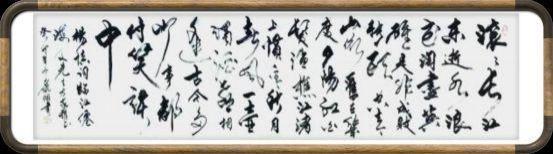 滚滚长江
东逝水浪
花淘尽英
雄是非成败
转头空青
山依旧在几
度夕阳红白
发渔樵江渚
上惯看秋月
春风一壶
浊酒喜相
逢古今多
少事都
付笑谈
中
杨慎词临江仙